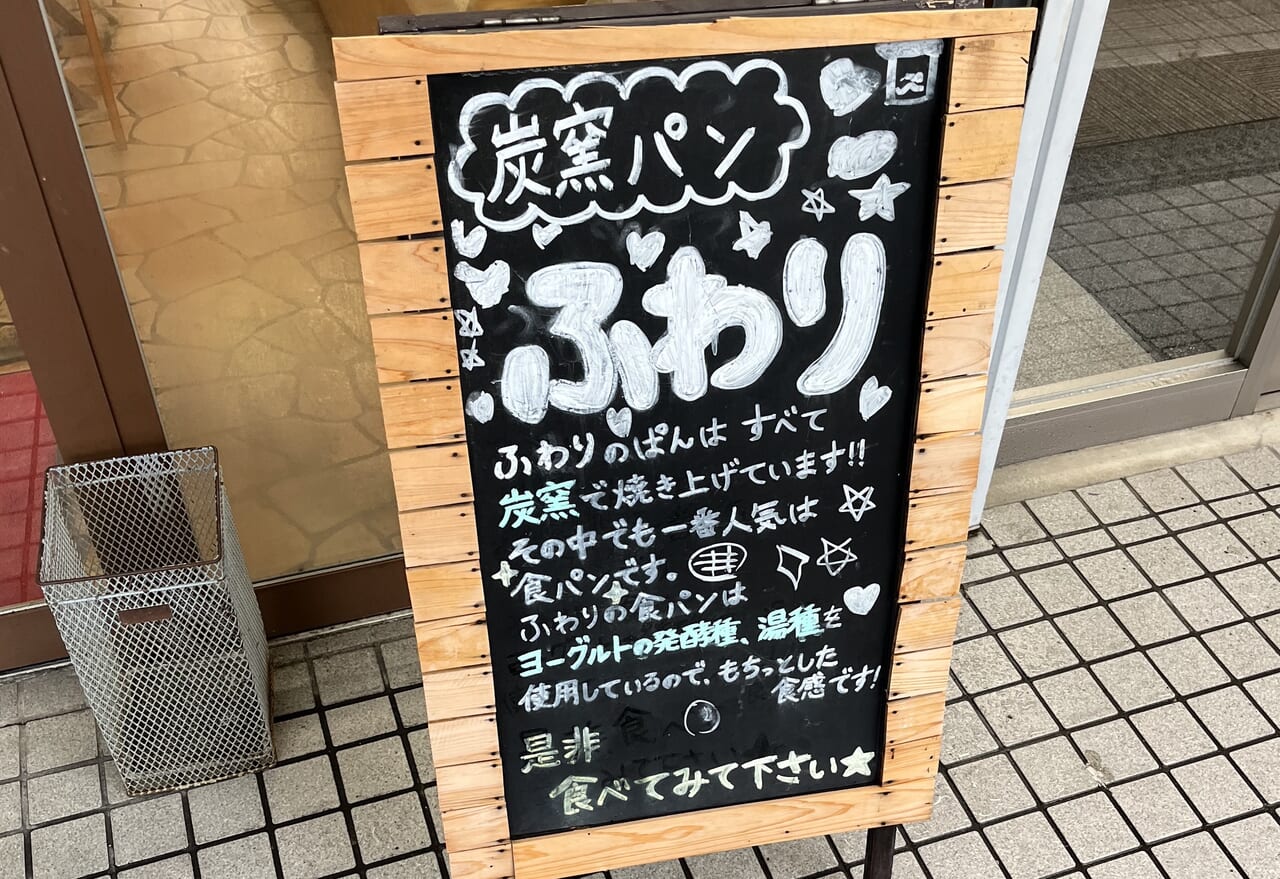 炭窯パン
ふわり
ふわりのぱんは すべて
炭窯で焼き上げています!!
その中でも一番人気は
食パンです。
ふわりの食パンは
ヨーグルトの発酵種、湯種を
使用しているので、もちっとした
食感です!
是非
食べてみて下さい★